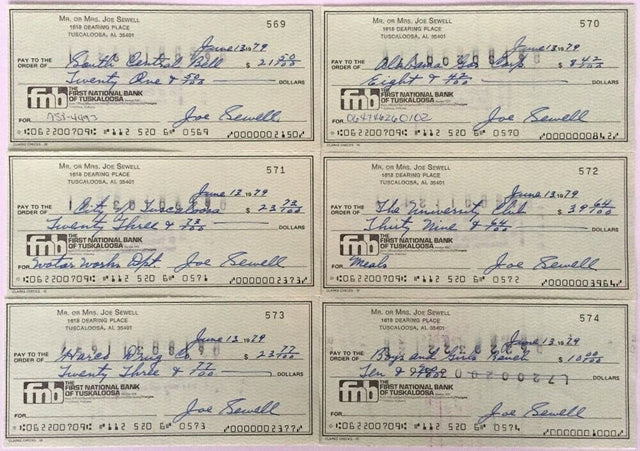 MR. OR MRS. JOE SEWELL
1618 DEARING PLACE
TUSCALOOSA, AL 35401
569
June 13 1979
PAY TO THE ORDER OF South Central Bell $ 21 50/100
Twenty One & 50/100 DOLLARS
fnb THE FIRST NATIONAL BANK OF TUSKALOOSA
FOR 758-4493 Joe Sewell
⑆062200709⑆ ⑈112 520 6⑈ 0569 ⑈0000002150⑈
MR. OR MRS. JOE SEWELL
1618 DEARING PLACE
TUSCALOOSA, AL 35401
570
June 13 1979
PAY TO THE ORDER OF Alabama Gas Corp. $ 8 42/100
Eight & 42/100 DOLLARS
fnb THE FIRST NATIONAL BANK OF TUSKALOOSA
FOR Joe Sewell
⑆062200709⑆ ⑈112 520 6⑈ 0570 ⑈0000000842⑈
MR. OR MRS. JOE SEWELL
1618 DEARING PLACE
TUSCALOOSA, AL 35401
571
June 13 1979
PAY TO THE ORDER OF City of Tuscaloosa $ 23 73/100
Twenty Three & 73/100 DOLLARS
fnb THE FIRST NATIONAL BANK OF TUSKALOOSA
FOR Water Works Dpt. Joe Sewell
⑆062200709⑆ ⑈112 520 6⑈ 0571 ⑈0000002373⑈
MR. OR MRS. JOE SEWELL
1618 DEARING PLACE
TUSCALOOSA, AL 35401
572
June 13 1979
PAY TO THE ORDER OF The University Club $ 39 64/100
Thirty Nine & 64/100 DOLLARS
fnb THE FIRST NATIONAL BANK OF TUSKALOOSA
FOR Meals Joe Sewell
⑆062200709⑆ ⑈112 520 6⑈ 0572 ⑈0000003964⑈
MR. OR MRS. JOE SEWELL
1618 DEARING PLACE
TUSCALOOSA, AL 35401
573
June 13 1979
PAY TO THE ORDER OF Harco Drug Co. $ 23 77/100
Twenty Three & 77/100 DOLLARS
fnb THE FIRST NATIONAL BANK OF TUSKALOOSA
FOR Joe Sewell
⑆062200709⑆ ⑈112 520 6⑈ 0573 ⑈0000002377⑈
MR. OR MRS. JOE SEWELL
1618 DEARING PLACE
TUSCALOOSA, AL 35401
574
June 13 1979
PAY TO THE ORDER OF Boys and Girls Ranch $ 10 00/100
Ten & DOLLARS
fnb THE FIRST NATIONAL BANK OF TUSKALOOSA
FOR Joe Sewell
⑆062200709⑆ ⑈112 520 6⑈ 0574 ⑈0000001000⑈